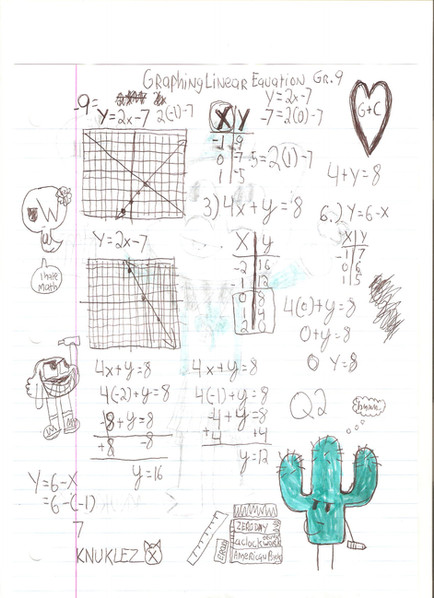 Graphing Linear Equation Gr.9
-9=
Y=2x-7 2(-1)-7
X Y
-1 -9
0 -7
1 -5
Y=2x-7
-7=2(0)-7
-5=2(1)-7
G+C
4+y=8
3) 4x+y=8
6.) Y=6-x
X Y
-1 7
0 6
1 5
W
I hate
Math
Y=2x-7
X Y
-2 16
-1 12
0 8
1 4
2 0
4(0)+y=8
0+y=8
0 Y=8
4x+y=8
4(-2)+y=8
-8+y=8
+8 -8
y=16
4x+y=8
4(-1)+y=8
-4+y=8
+4 +4
y=12
Q2
Y=6-x
=6-(-1)
7
KNUKLEZ
ZERO DAY
aclockwork